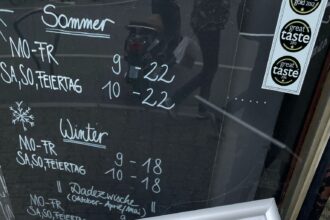 Sommer
MO-FR 9-22
SA, SO, FEIERTAG 10-22
Winter
MO-FR 9-18
SA, SO, FEIERTAG 10-18
" Dadezwüsche "
(Oktober - April/Mai)
MO-FR
great taste
great taste